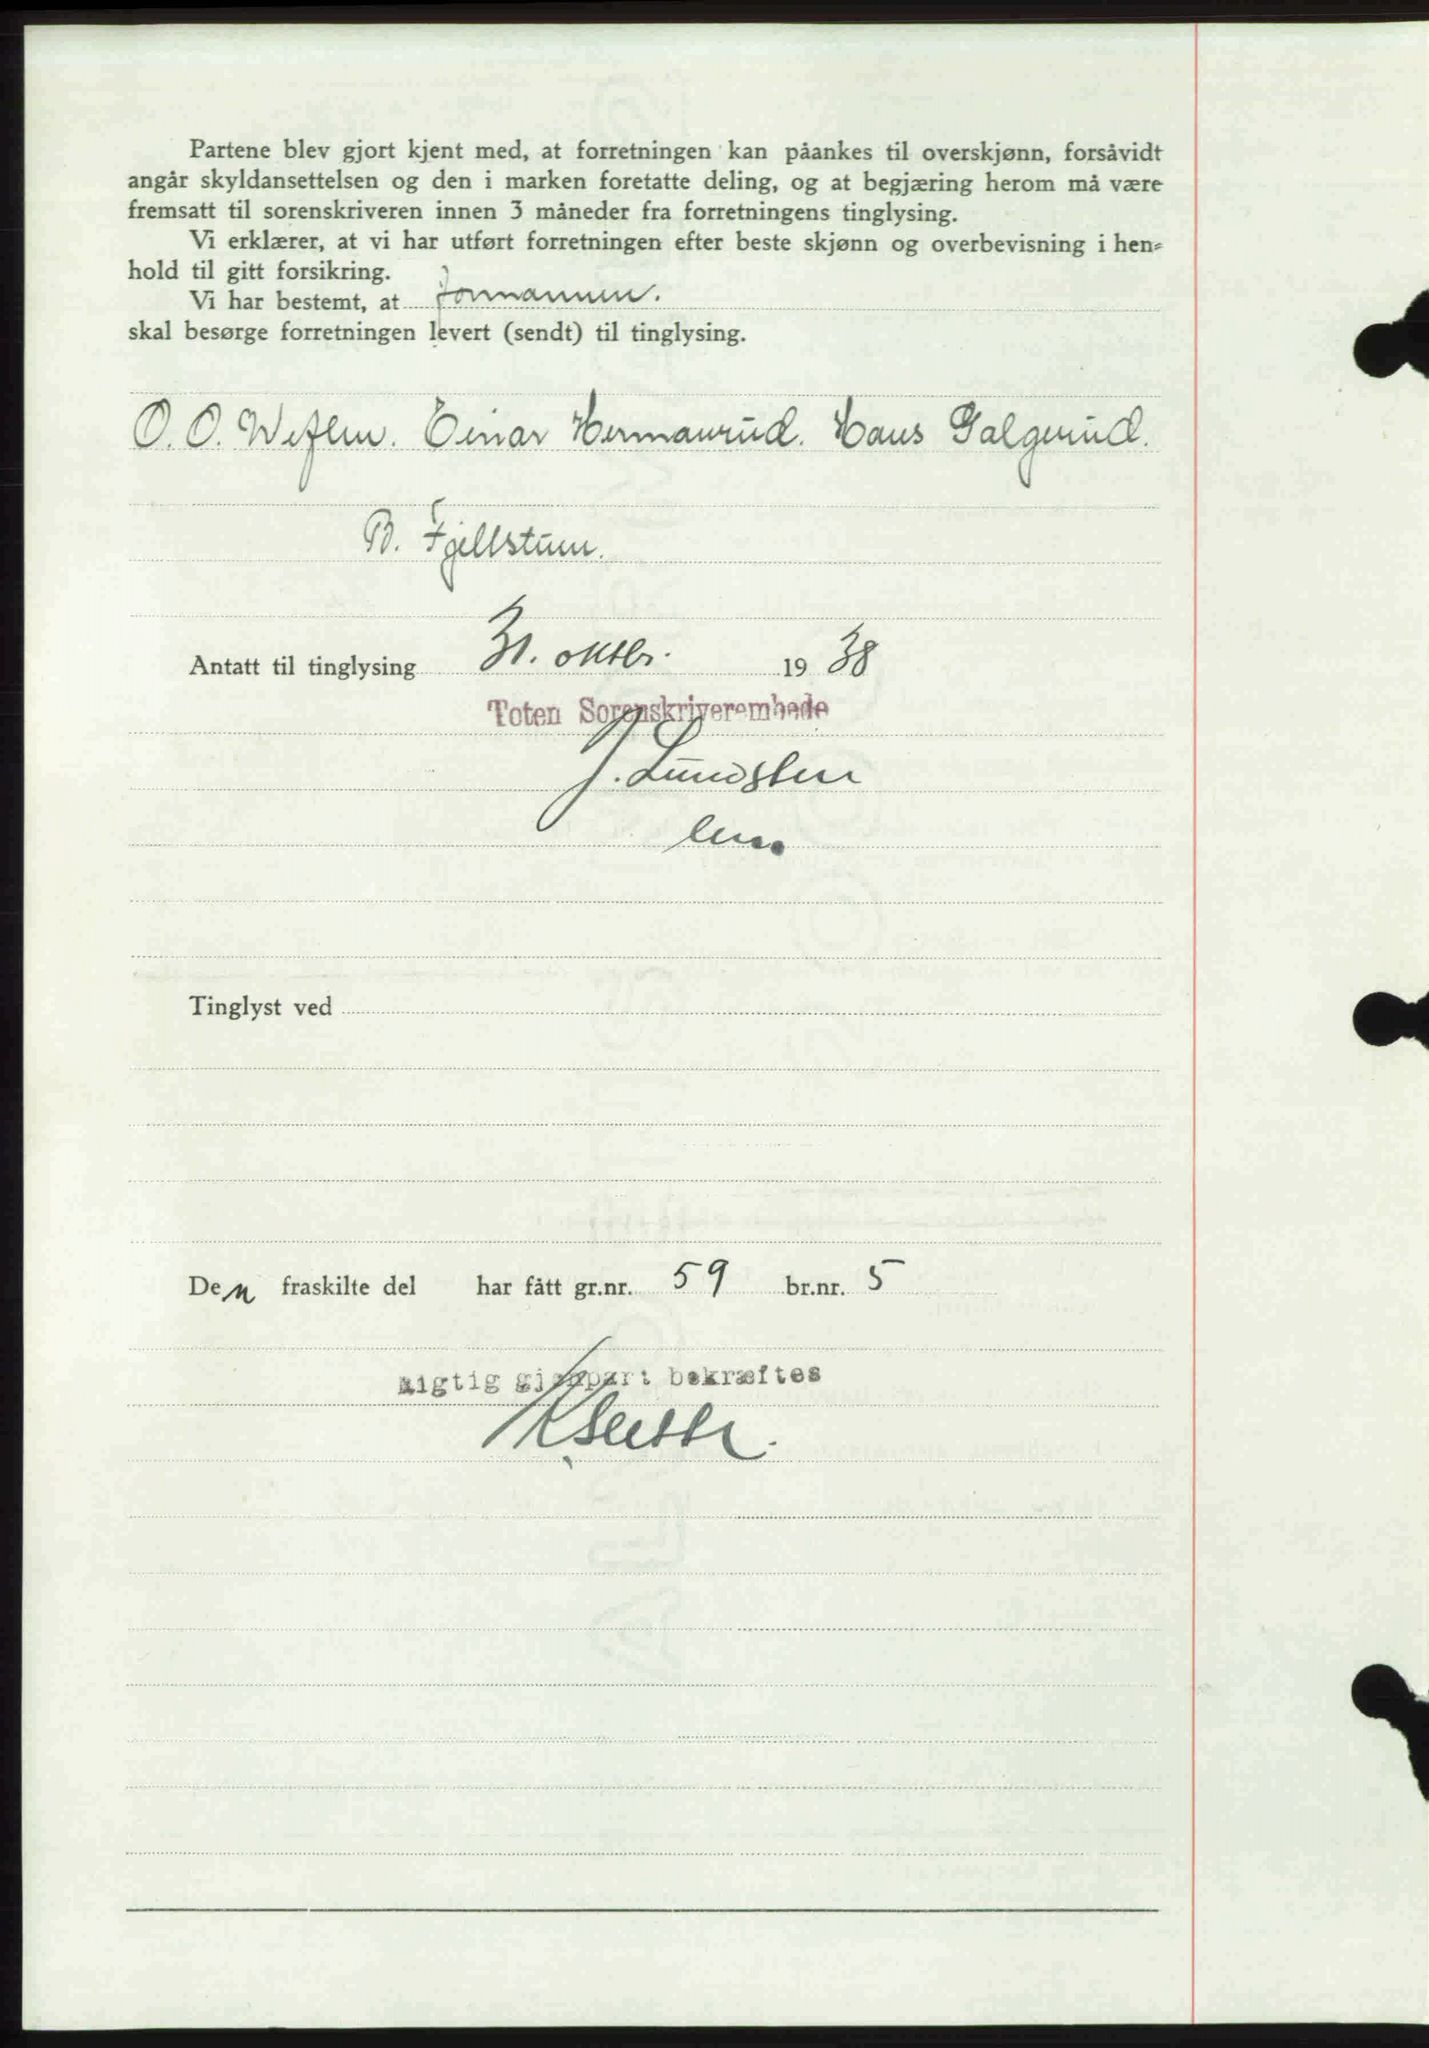 Partene blev gjort kjent med, at forretningen kan påankes til overskjønn, forsåvidt
angår skyldansettelsen og den i marken foretatte deling, og at begjæring herom må være
fremsatt til sorenskriveren innen 3 måneder fra forretningens tinglysing.
Vi erklærer, at vi har utført forretningen efter beste skjønn og overbevisning i hen-
hold til gitt forsikring.
Vi har bestemt, at formannen.
skal besørge forretningen levert (sendt) til tinglysing.
O. O. Weflen. Einar Hermanrud. Hans Galgerud.
B. Fjellstuen.
Antatt til tinglysing 31. oktbr. 19 38
Toten Sorenskriverembede
J. Lundsten
Tinglyst ved
Den fraskilte del har fått gr.nr. 59 br.nr. 5
Rigtig gjenpart bekræftes